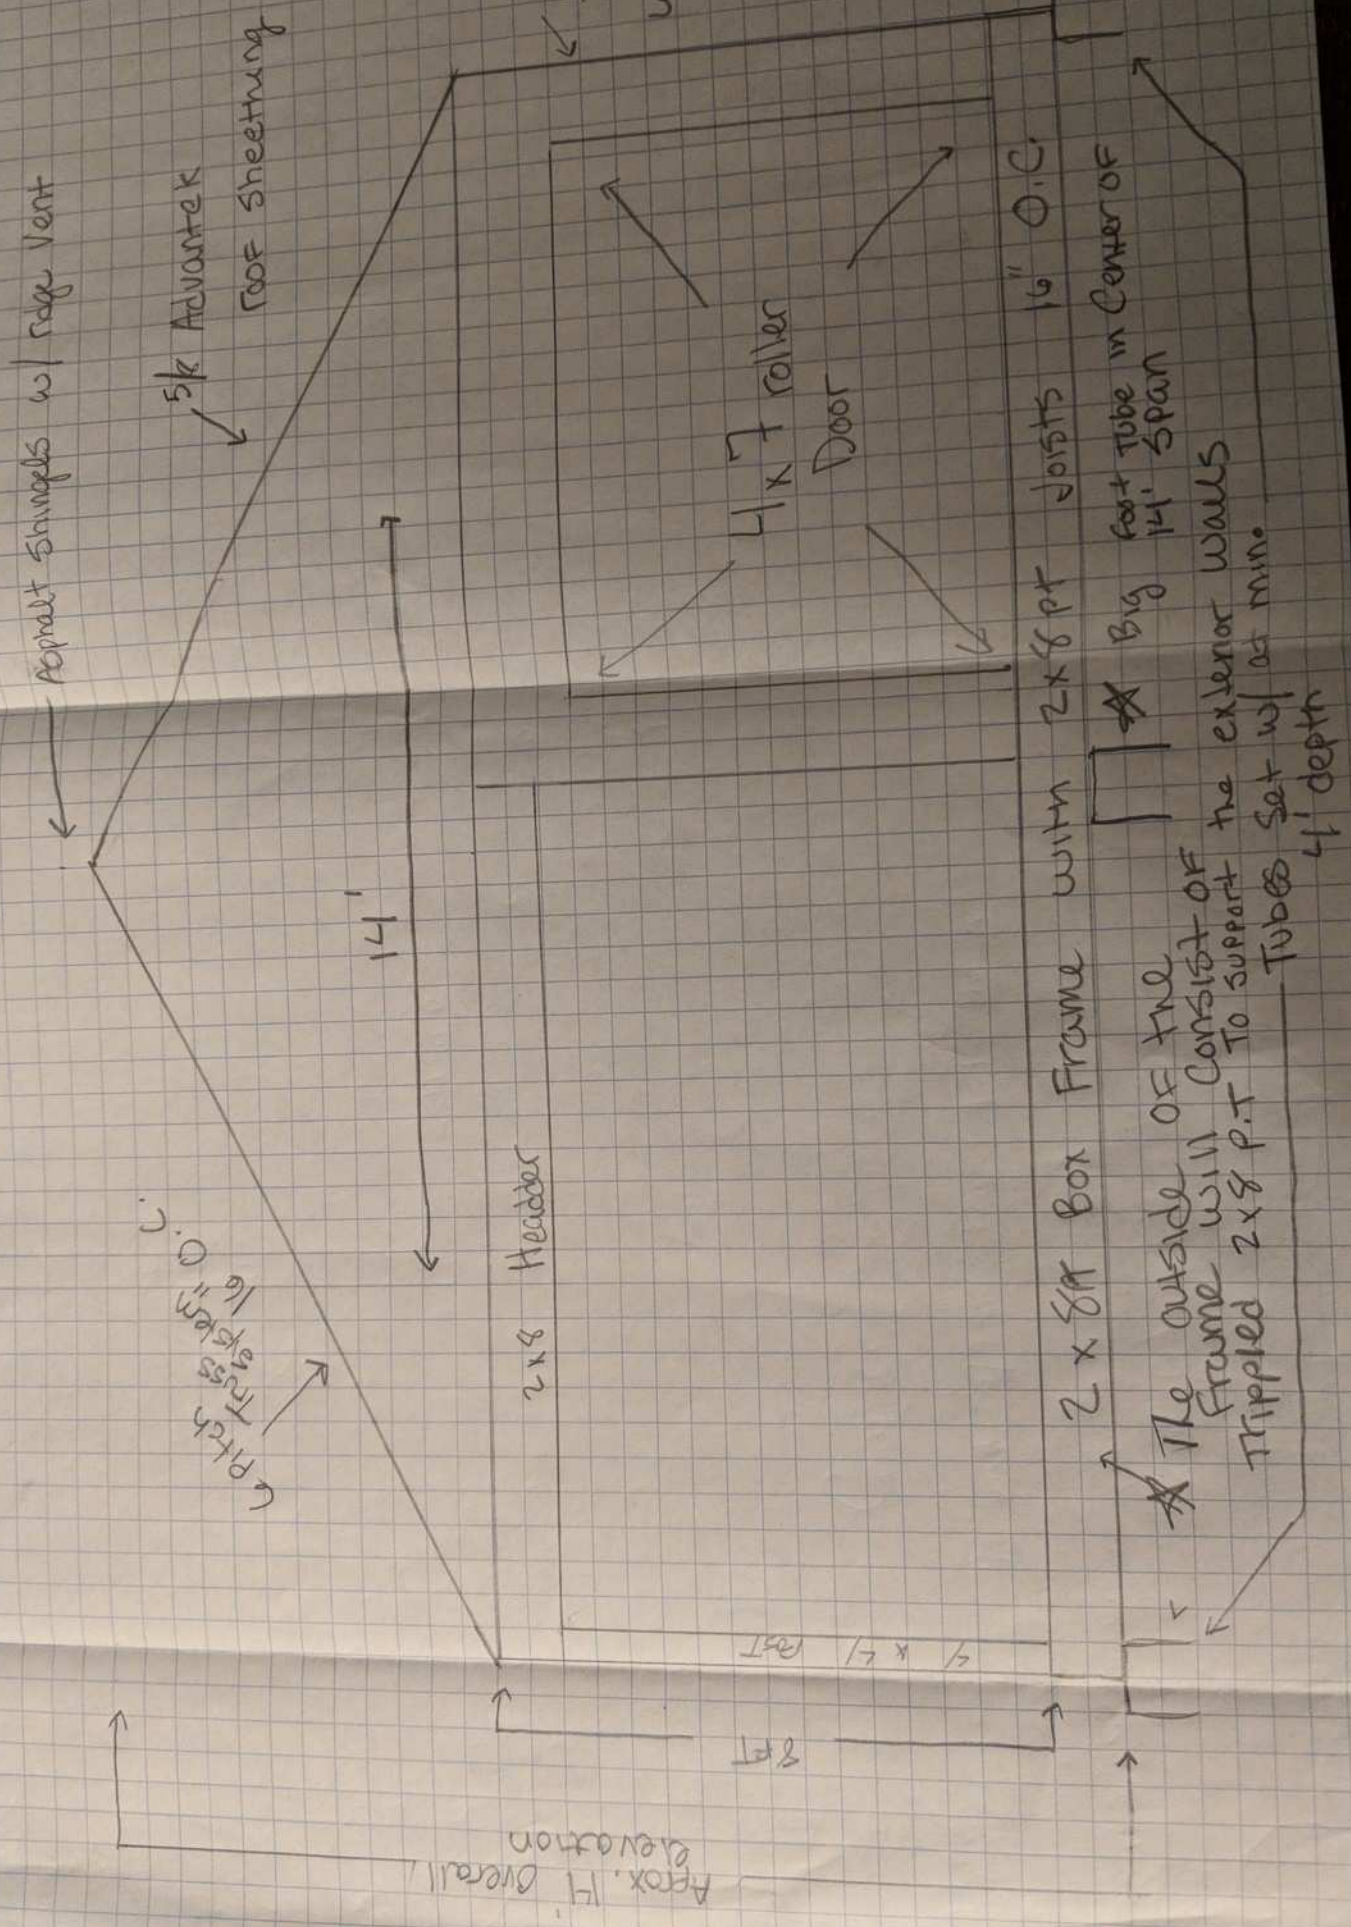 Asphalt Shingels w/ ridge Vent
5/8 Advantek
roof Sheetning
Pitch Truss system
16" O.C.
14'
2x8 Headder
4x7 roller
Door
4x4 Post
8FT
Aprox. 14' Overall
elevation
2x8PT Box Frame with 2x8 pt Joists 16" O.C.
Big foot Tube in Center OF
14' Span
The outside OF the
Frame will Consist OF
Trippled 2x8 P.T To support the exterior walls
Tubes Set w/ a min.
4' depth